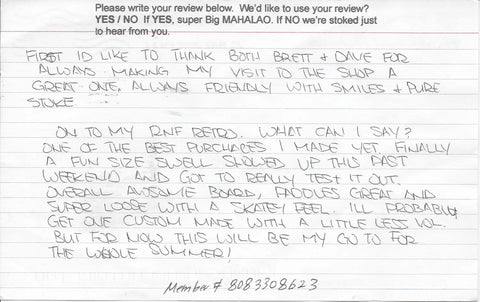 Please write your review below. We'd like to use your review?
YES / NO If YES, super Big MAHALAO. If NO we're stoked just
to hear from you.
FIRST ID LIKE TO THANK BOTH BRETT & DAVE FOR
ALWAYS MAKING MY VISIT TO THE SHOP A
GREAT ONE. ALWAYS FRIENDLY WITH SMILES & PURE
STOKE
ON TO MY RNF RETRO. WHAT CAN I SAY?
ONE OF THE BEST PURCHASES I MADE YET. FINALLY
A FUN SIZE SWELL SHOWED UP THIS PAST
WEEKEND AND GOT TO REALLY TEST IT OUT.
OVERALL AWSOME BOARD, PADDLES GREAT AND
SUPER LOOSE WITH A SKATEY FEEL. ILL PROBABLY
GET ONE CUSTOM MADE WITH A LITTLE LESS VOL.
BUT FOR NOW THIS WILL BE MY GO TO FOR
THE WHOLE SUMMER!
Member # 8083308623